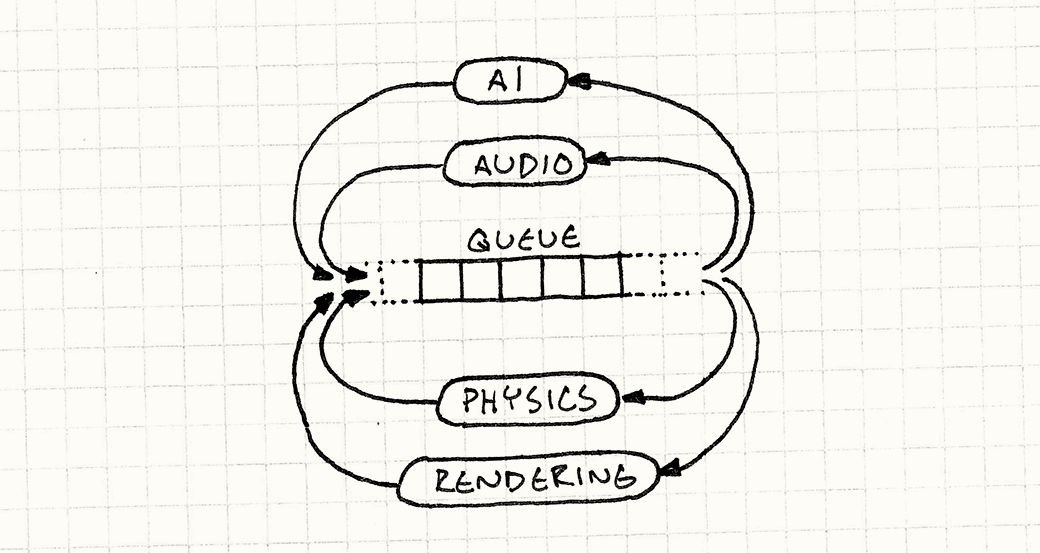 AI
AUDIO
QUEUE
PHYSICS
RENDERING